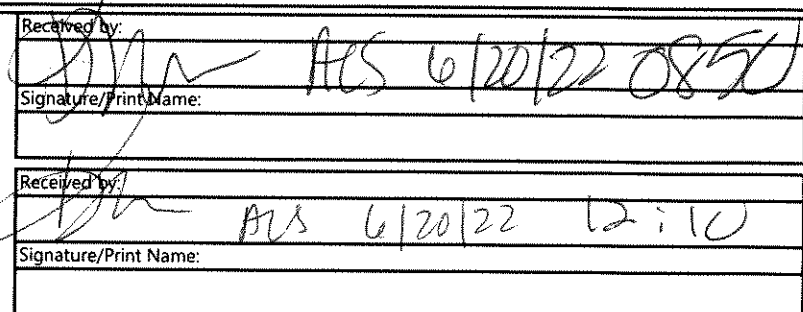 Received by:
ALS 6/20/22 0850
Signature/Print Name:
Received by:
ALS 6/20/22 12:10
Signature/Print Name: